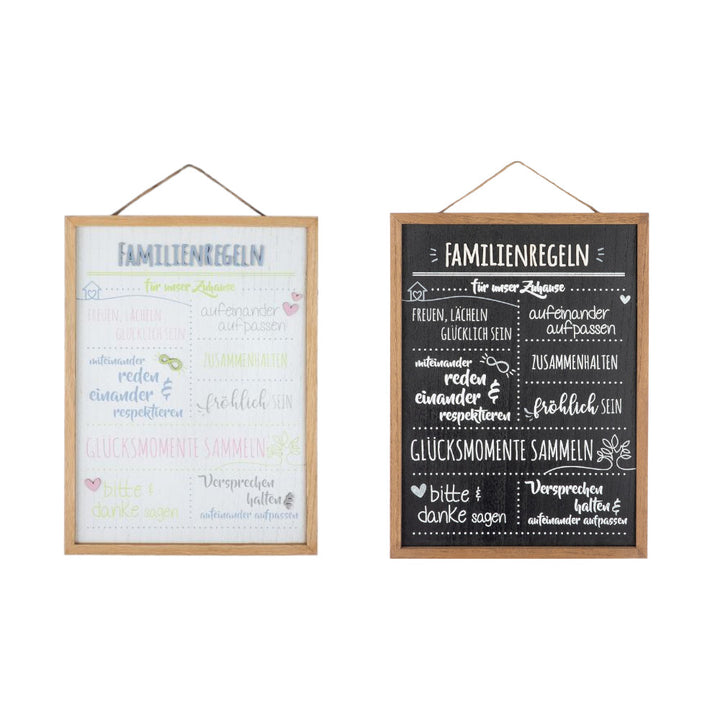 FAMILIENREGELN
für unser Zuhause
FREUEN, LÄCHELN
GLÜCKLICH SEIN
aufeinander
aufpassen
miteinander
reden
einander &
respektieren
ZUSAMMENHALTEN
fröhlich SEIN
GLÜCKSMOMENTE SAMMELN
bitte &
danke sagen
Versprechen
halten &
aufeinander aufpassen
FAMILIENREGELN
für unser Zuhause
FREUEN, LÄCHELN
GLÜCKLICH SEIN
aufeinander
aufpassen
miteinander
reden
einander &
respektieren
ZUSAMMENHALTEN
fröhlich SEIN
GLÜCKSMOMENTE SAMMELN
bitte &
danke sagen
Versprechen
halten &
aufeinander aufpassen